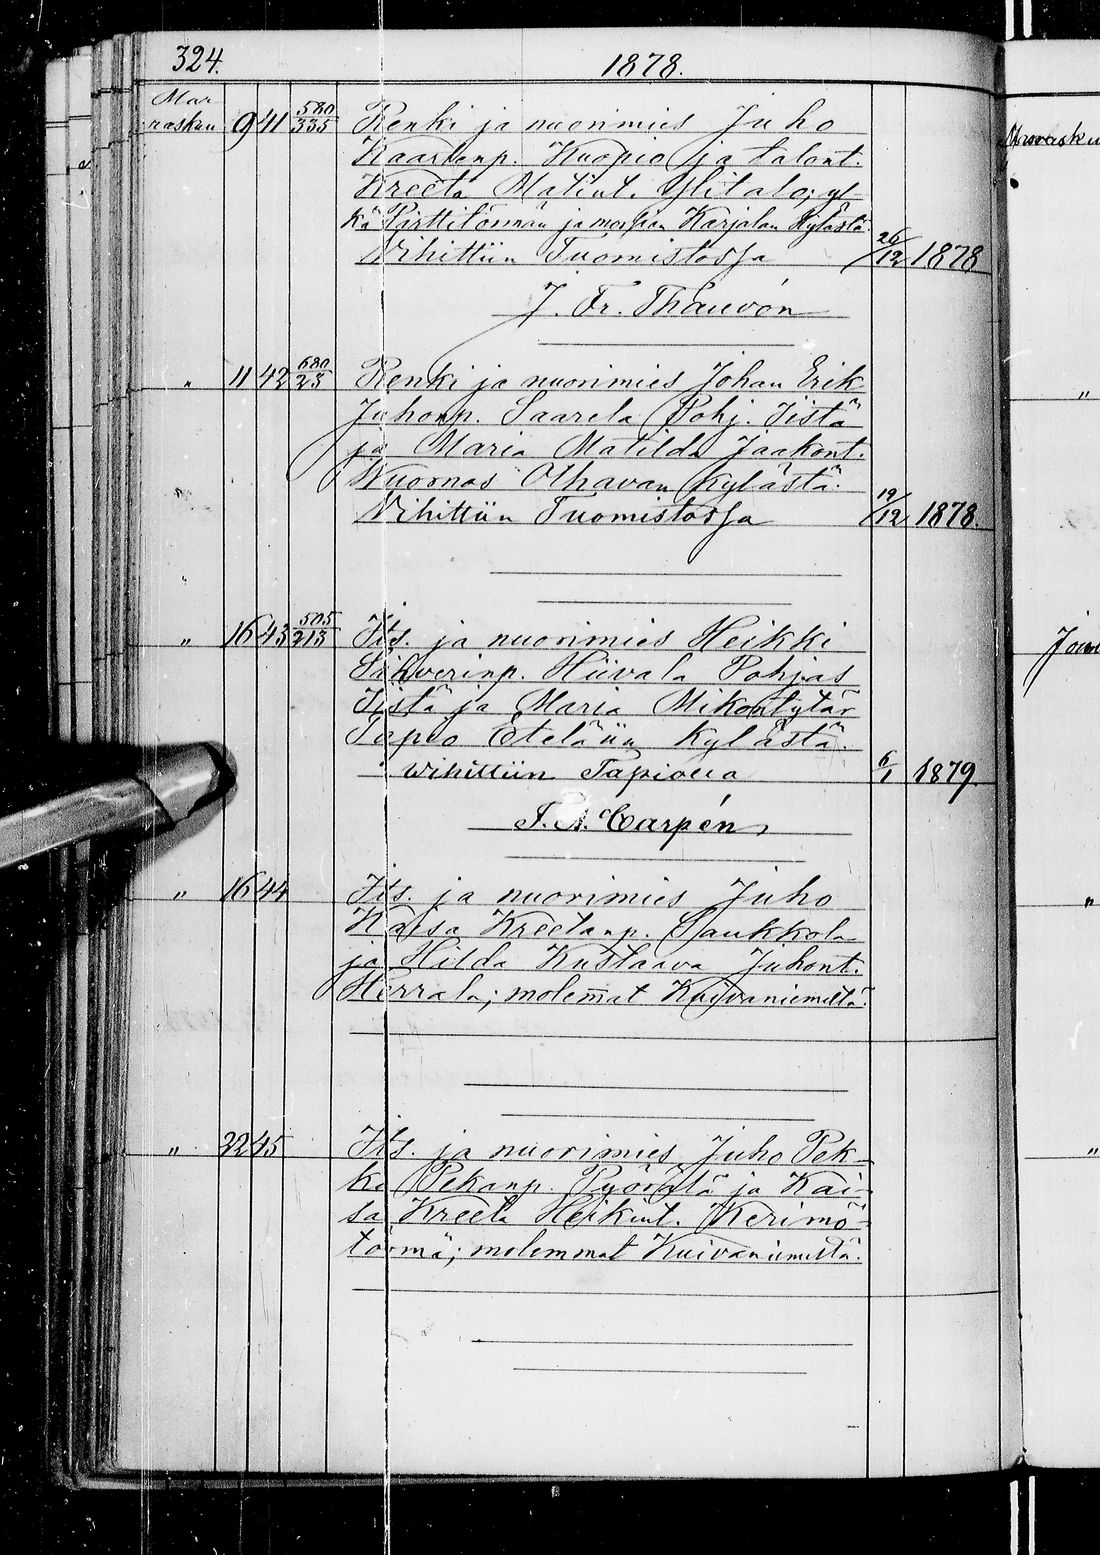 324.
1878.
Mar
raskuu 9 41 580/335 Renki ja nuorimies Juho
Kaarlenp. Kuopio ja talont.
Kreeta Matint. Ylitalo; yl-
kä Pirttitörmän ja morsian Karjalan kylästä.
Vihittiin Tuomistossa 26/12 1878
J. Fr. Thauvón
" 11 42 680/23 Renki ja nuorimies Johan Erik
Juhonp. Saarela Pohj. Iistä
ja Maria Matilda Jaakont.
Kuornos Olhavan kylästä.
Vihittiin Tuomistossa 19/12 1878.
" 16 43 505/213 Its. ja nuorimies Heikki
Sihverinp. Hiivala Pohjas
Iistä ja Maria Mikontytär
Tapio Eteläiin kylästä.
wihittiin Tapiolla 6/1 1879.
T. A. Carpén
" 16 44 Its. ja nuorimies Juho
Kaisa Kreetanp. Saukkola
ja Hilda Kustaava Juhont.
Herrala; molemat Kuivaniemeltä.
" 22 45 Its. ja nuorimies Juho Pek-
ka Pekanp. Pyörälä ja Kai-
sa Kreeta Heikint. Kerimö-
törmä; molemmat Kuivaniemeltä.
Marrasku
"
"
"